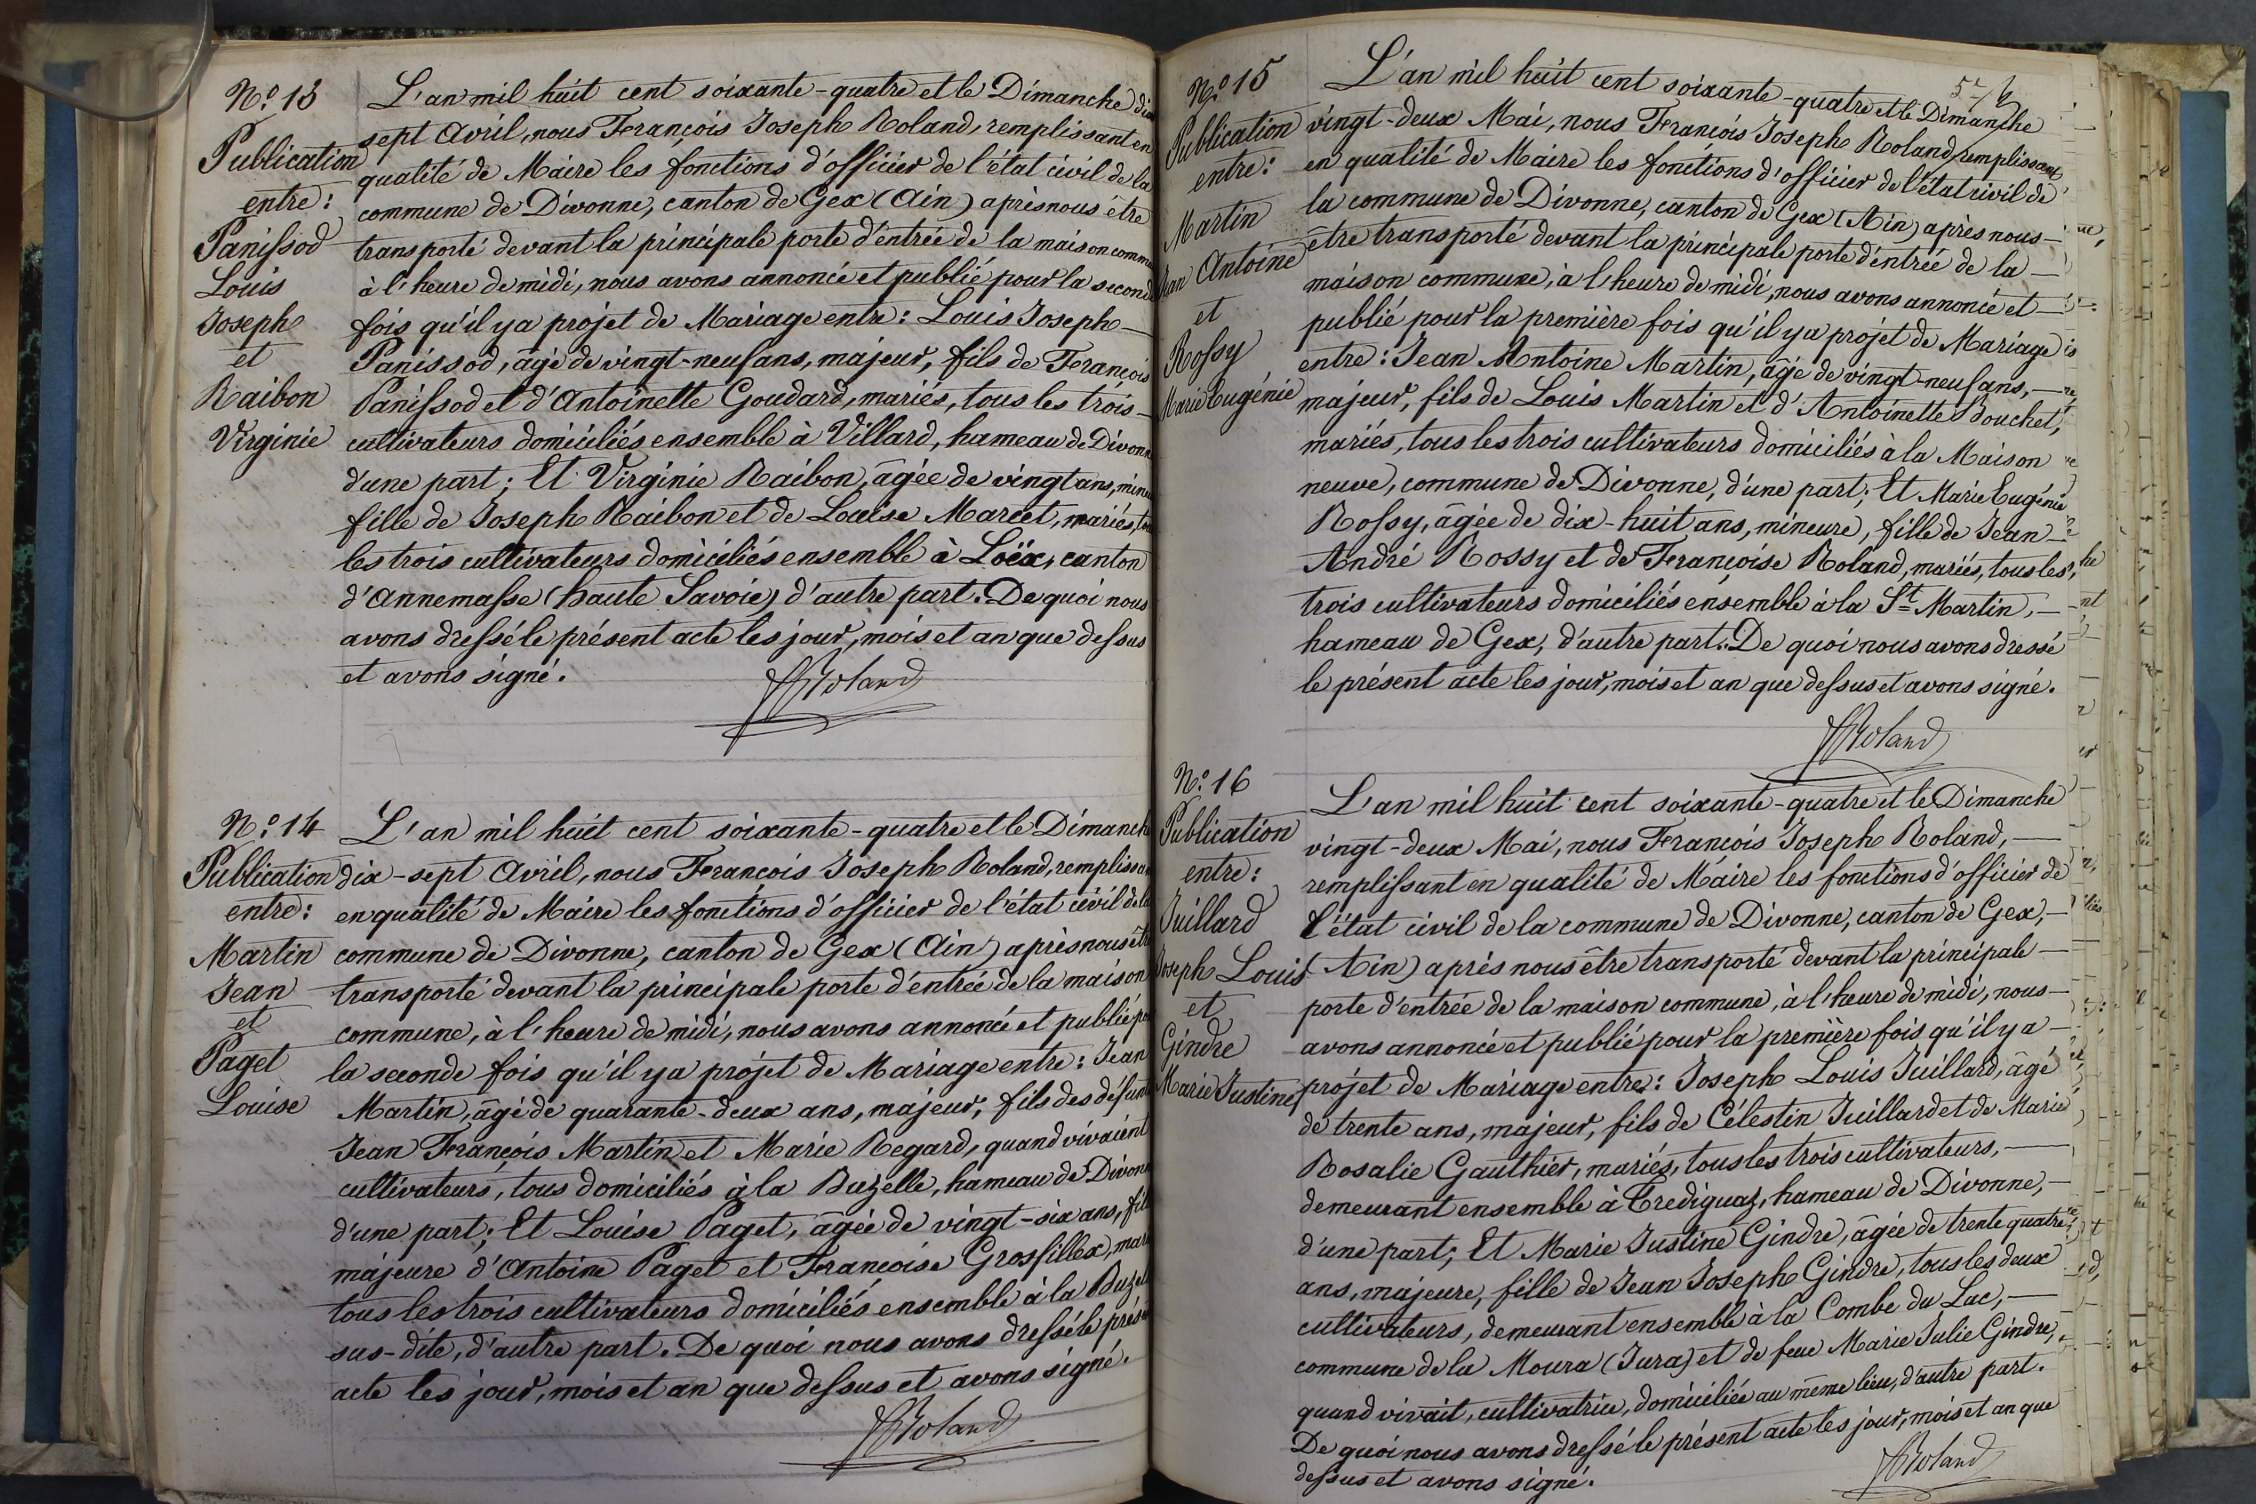 N.º 13
Publication
entre:
Panissod
Louis
Joseph
et
Raibon
Virginie
L'an mil huit cent soixante-quatre et le Dimanche dix
sept Avril, nous François Joseph Roland, remplissant en
qualité de Maire les fonctions d'officier de l'état civil de la
commune de Divonne, canton de Gex (Ain) après nous être
transporté devant la principale porte d'entrée de la maison commu
à l'heure de midi, nous avons annoncé et publié pour la second
fois qu'il y a projet de Mariage entre: Louis Joseph —
Panissod, âgé de vingt-neuf ans, majeur, fils de François
Panissod et d'Antoinette Goudard, mariés, tous les trois —
cultivateurs domiciliés ensemble à Villard, hameau de Divonn
d'une part; Et Virginie Raibon, âgée de vingt ans, mineu
fille de Joseph Raibon et de Louise Marcet, mariés, to
les trois cultivateurs domiciliés ensemble à Loëx, canton
d'Annemasse (haute Savoie) d'autre part. De quoi nous
avons dressé le présent acte les jour, mois et an que dessus
et avons signé.
Roland
N.º 14
Publication
entre:
Martin
Jean
et
Paget
Louise
L'an mil huit cent soixante-quatre et le Dimanch
dix-sept Avril, nous François Joseph Roland, remplissa
en qualité de Maire les fonctions d'officier de l'état civil de la
commune de Divonne, canton de Gex (Ain) après nous êtr
transporté devant la principale porte d'entrée de la maison
commune, à l'heure de midi, nous avons annoncé et publié po
la seconde fois qu'il y a projet de Mariage entre: Jean
Martin, âgé de quarante-deux ans, majeur, fils des défunt
Jean François Martin et Marie Regard, quand vivaient
cultivateurs, tous domiciliés à la Buzelle, hameau de Divonn
d'une part; Et Louise Paget, âgée de vingt-six ans, fill
majeure d'Antoine Paget et Françoise Grosfillex, mari
tous les trois cultivateurs domiciliés ensemble à la Buzel
sus-dite, d'autre part. De quoi nous avons dressé le prése
acte les jour, mois et an que dessus et avons signé.
Roland
N.º 15
Publication
entre:
Martin
Jean Antoine
et
Rossy
Marie Eugénie
L'an mil huit cent soixante-quatre et le Dimanche
vingt-deux Mai, nous François Joseph Roland, remplissant
en qualité de Maire les fonctions d'officier de l'état civil de
la commune de Divonne, canton de Gex (Ain) après nous —
être transporté devant la principale porte d'entrée de la —
maison commune, à l'heure de midi, nous avons annoncé et —
publié pour la première fois qu'il y a projet de Mariage
entre: Jean Antoine Martin, âgé de vingt-neuf ans, —
majeur, fils de Louis Martin et d'Antoinette Bouchet,
mariés, tous les trois cultivateurs domiciliés à la Maison
neuve, commune de Divonne, d'une part; Et Marie Eugénie
Rossy, âgée de dix-huit ans, mineure, fille de Jean —
André Rossy et de Françoise Roland, mariés, tous les
trois cultivateurs domiciliés ensemble à la St Martin, —
hameau de Gex, d'autre part. De quoi nous avons dressé
le présent acte les jour, mois et an que dessus et avons signé.
Roland
N.º 16
Publication
entre:
Juillard
Joseph Louis
et
Gindre
Marie Justine
L'an mil huit cent soixante-quatre et le Dimanche
vingt-deux Mai, nous François Joseph Roland, —
remplissant en qualité de Maire les fonctions d'officier de
l'état civil de la commune de Divonne, canton de Gex, —
(Ain) après nous être transporté devant la principale —
porte d'entrée de la maison commune, à l'heure de midi, nous —
avons annoncé et publié pour la première fois qu'il y a —
projet de Mariage entre: Joseph Louis Juillard, âgé
de trente ans, majeur, fils de Célestin Juillard et de Marie
Rosalie Gauthier, mariés, tous les trois cultivateurs, —
demeurant ensemble à Trediguaz, hameau de Divonne, —
d'une part; Et Marie Justine Gindre, âgée de trente quatre
ans, majeure, fille de Jean Joseph Gindre, tous les deux
cultivateurs, demeurant ensemble à la Combe du Lac, —
commune de la Moura (Jura) et de feue Marie Julie Gindre,
quand vivait, cultivatrice, domiciliée au même lieu, d'autre part.
De quoi nous avons dressé le présent acte les jour, mois et an que
dessus et avons signé.
Roland